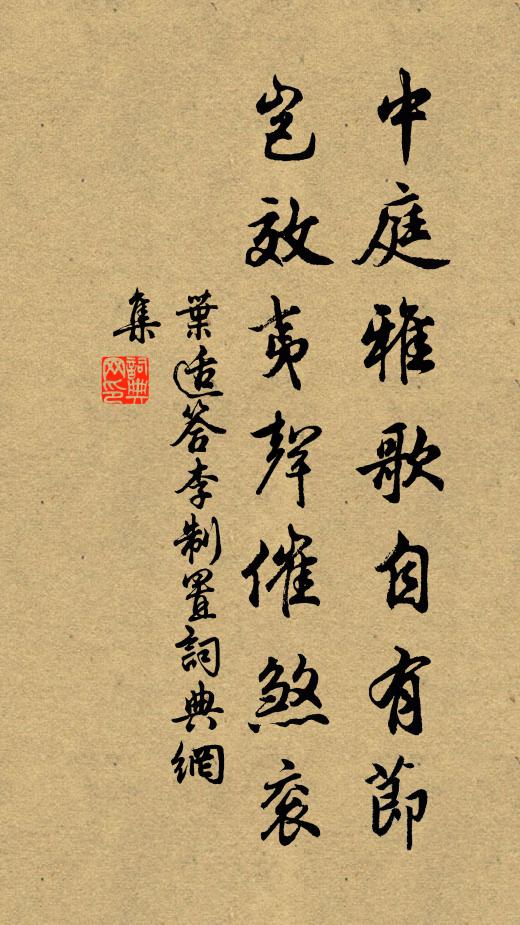 中庭雅歌自有節
豈效夷聲催煞衮
葉适答李制置詞典網
集
詞典
网印